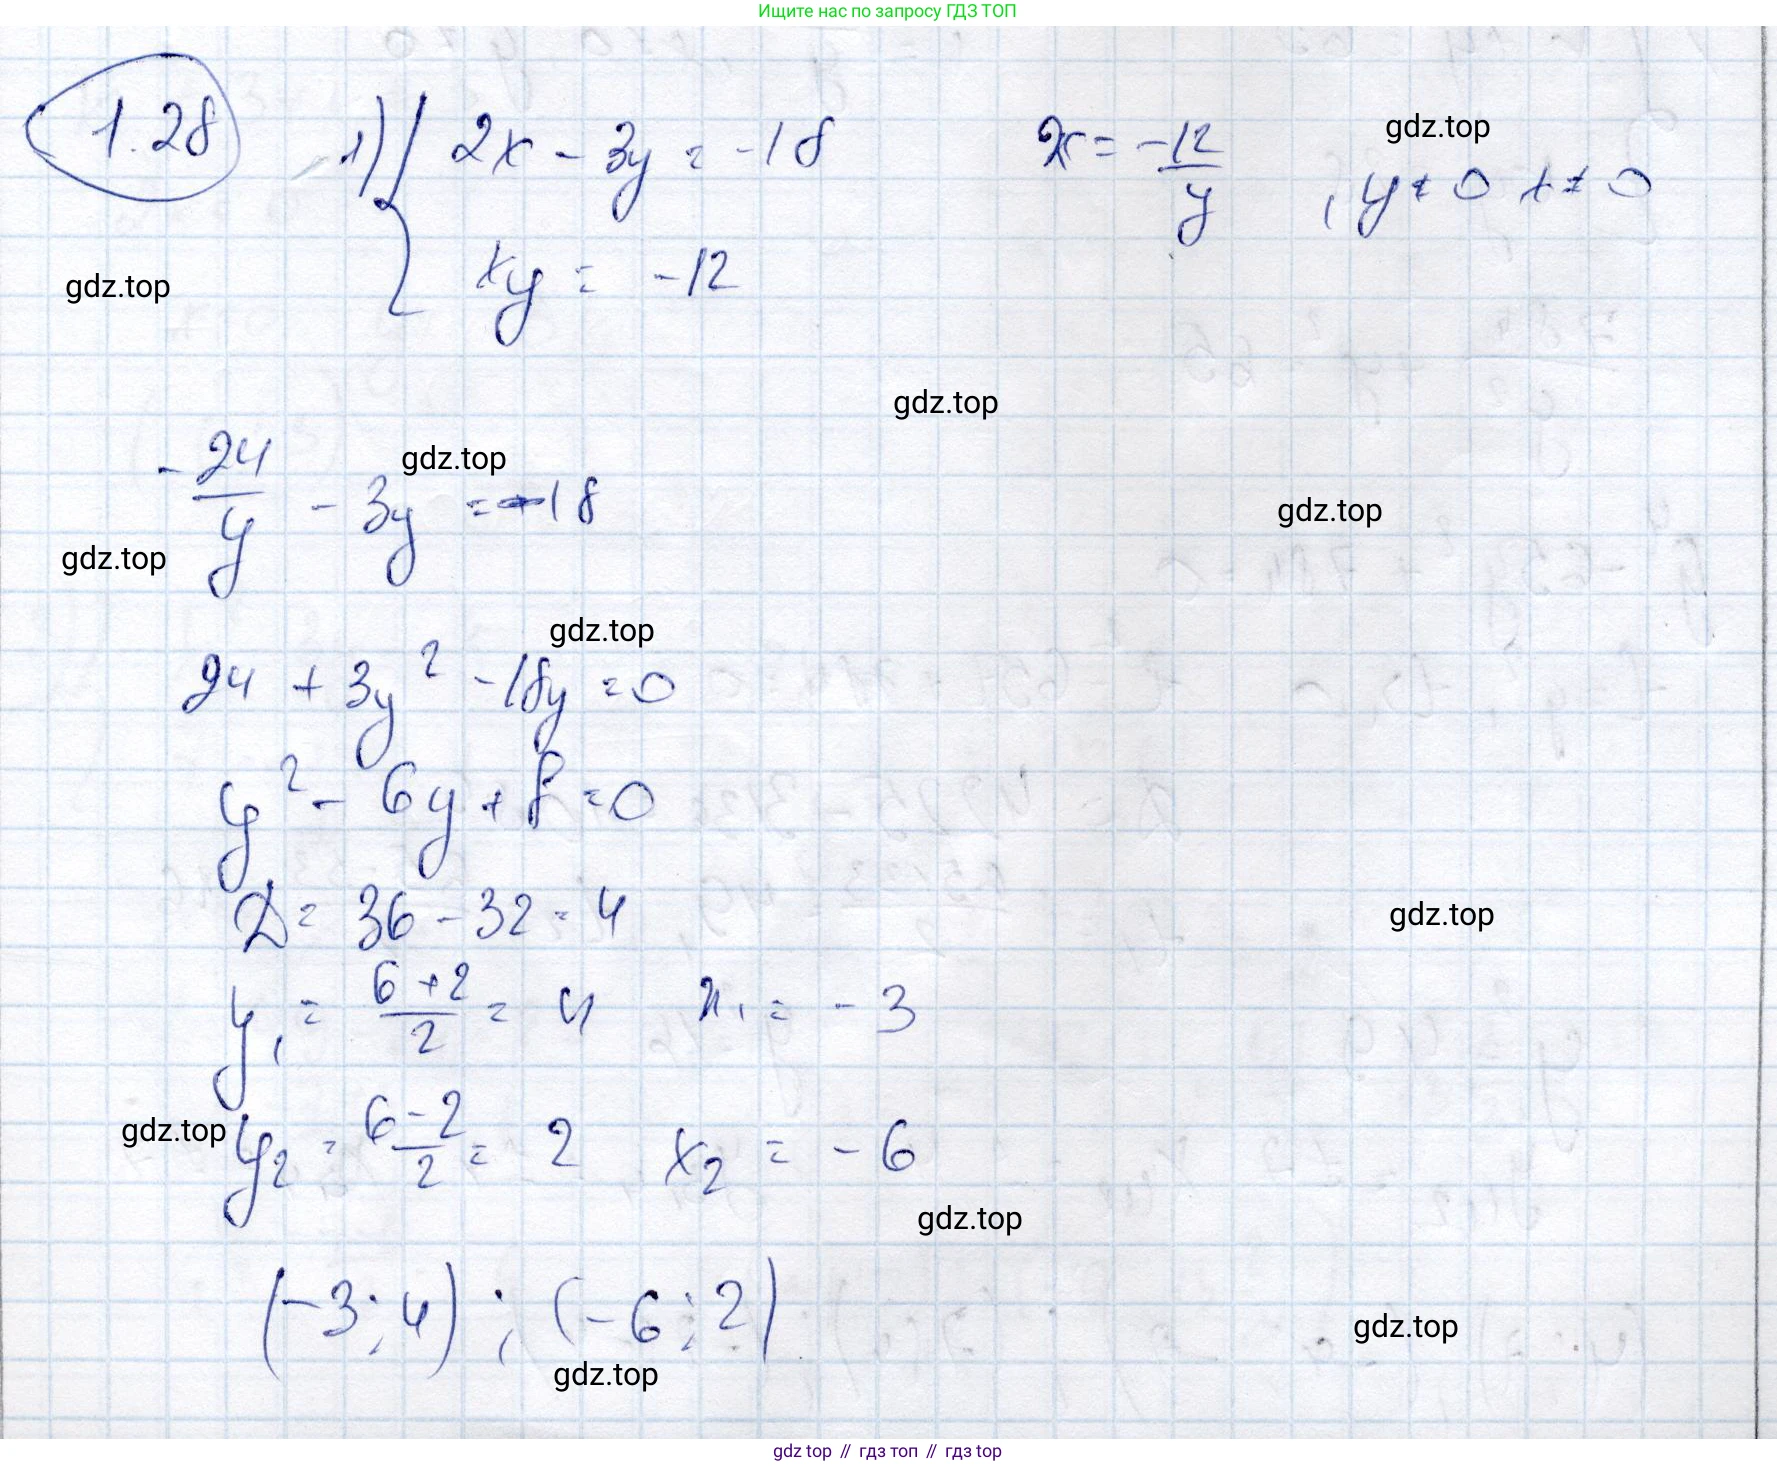 Ищите нас по запросу ГДЗ ТОП
1.28 1) { 2x - 3y = -18 x = -12/y , y ≠ 0 x ≠ 0
gdz.top
xy = -12
gdz.top
gdz.top
-24/y - 3y = -18
gdz.top
gdz.top
gdz.top
gdz.top
24 + 3y² - 18y = 0
y² - 6y + 8 = 0
D = 36 - 32 = 4
gdz.top
y₁ = (6 + 2)/2 = 4 x₁ = -3
gdz.top
y₂ = (6 - 2)/2 = 2 x₂ = -6
gdz.top
(-3; 4) ; (-6; 2)
gdz.top
gdz.top
gdz top // гдз топ // гдз top